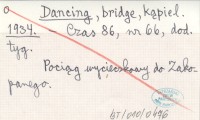 Dancing, bridge, kąpiel.
1934. - Czas 86, nr 66, dod.
tyg.
Pociąg wycieczkowy do Zako-
panego.
BJ/010/0496